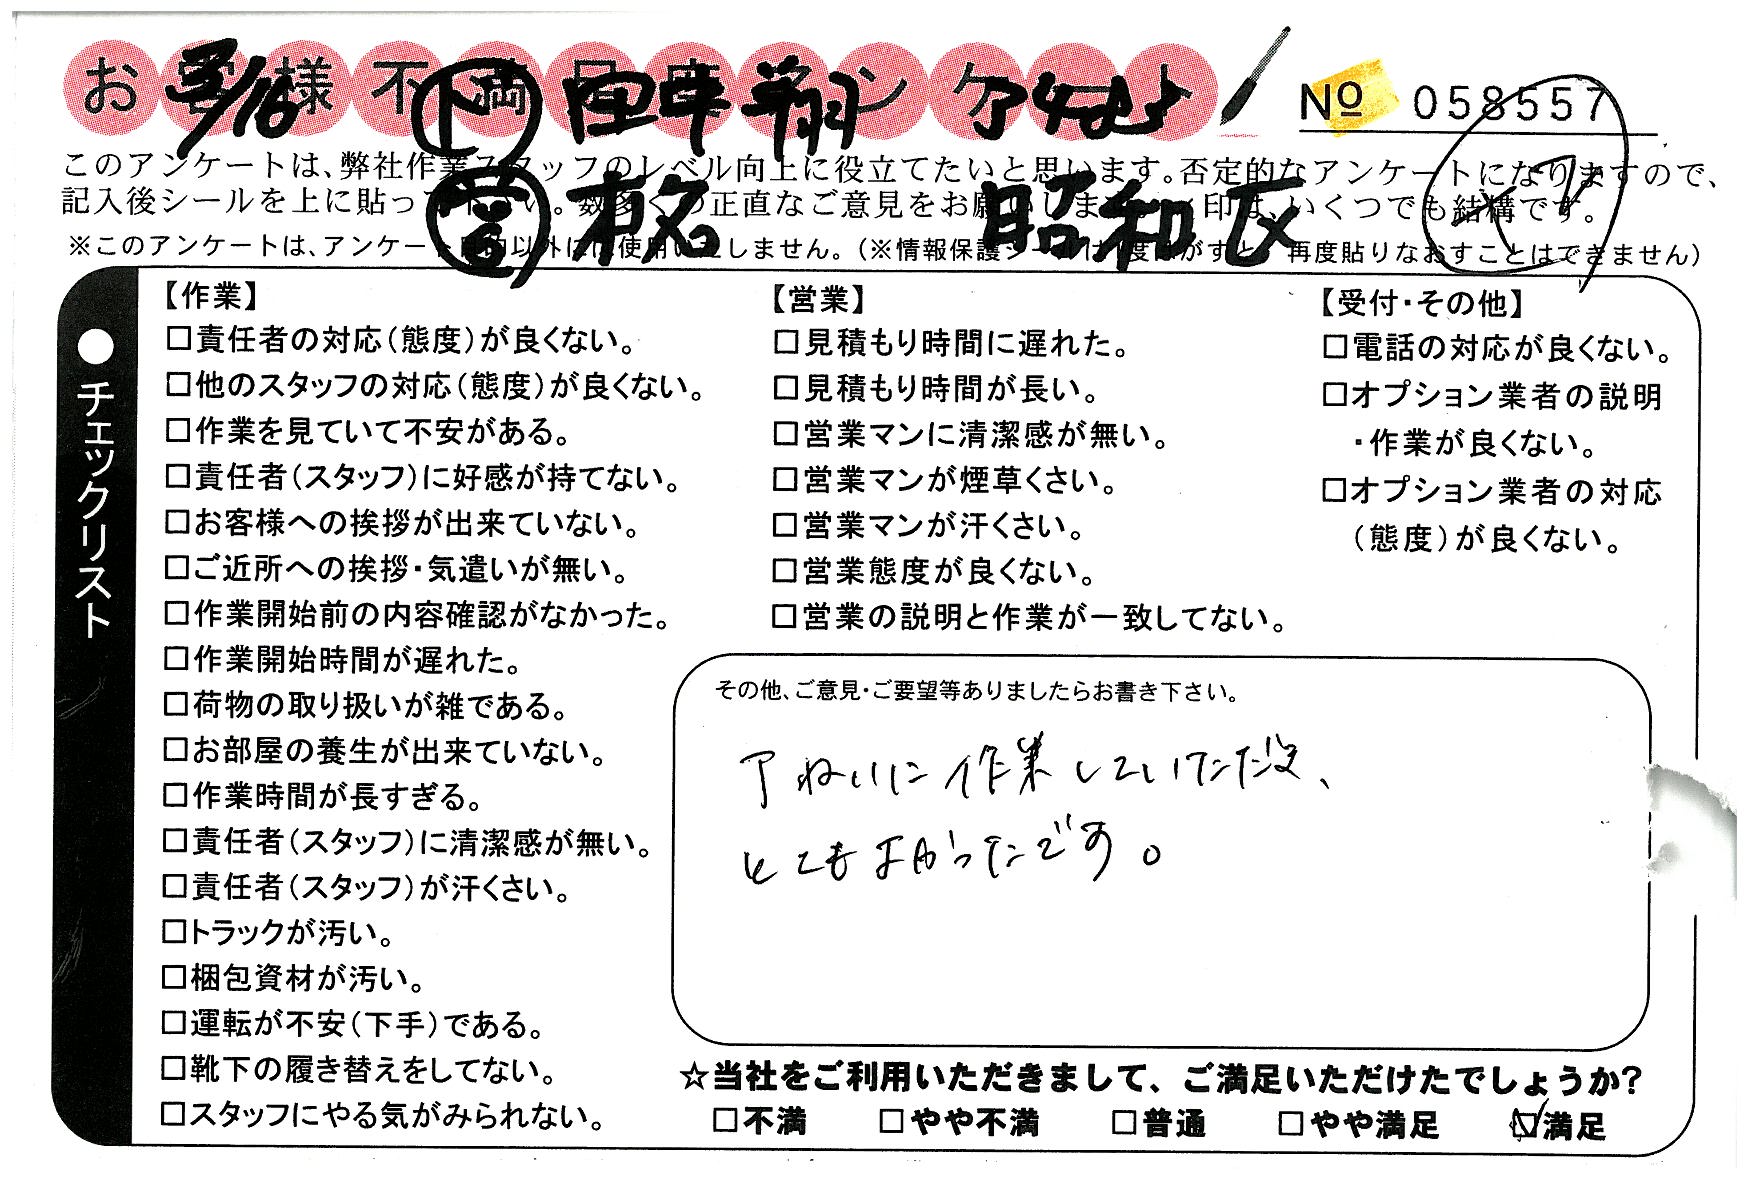 お客様不満足度アンケート
3/16
№ 058557
このアンケートは、弊社作業スタッフのレベル向上に役立てたいと思います。否定的なアンケートになりますので、
記入後シールを上に貼って下さい。数多くの正直なご意見をお願いします。✓印は、いくつでも結構です。
昭和区
※このアンケートは、アンケート目的以外には使用いたしません。(※情報保護シールは1度はがすと、再度貼りなおすことはできません)
●チェックリスト
【作業】
□責任者の対応(態度)が良くない。
□他のスタッフの対応(態度)が良くない。
□作業を見ていて不安がある。
□責任者(スタッフ)に好感が持てない。
□お客様への挨拶が出来ていない。
□ご近所への挨拶・気遣いが無い。
□作業開始前の内容確認がなかった。
□作業開始時間が遅れた。
□荷物の取り扱いが雑である。
□お部屋の養生が出来ていない。
□作業時間が長すぎる。
□責任者(スタッフ)に清潔感が無い。
□責任者(スタッフ)が汗くさい。
□トラックが汚い。
□梱包資材が汚い。
□運転が不安(下手)である。
□靴下の履き替えをしてない。
□スタッフにやる気がみられない。
【営業】
□見積もり時間に遅れた。
□見積もり時間が長い。
□営業マンに清潔感が無い。
□営業マンが煙草くさい。
□営業マンが汗くさい。
□営業態度が良くない。
□営業の説明と作業が一致してない。
【受付・その他】
□電話の対応が良くない。
□オプション業者の説明
・作業が良くない。
□オプション業者の対応
(態度)が良くない。
その他、ご意見・ご要望等ありましたらお書き下さい。
丁ねいに作業していただき、
とてもよかったです。
☆当社をご利用いただきまして、ご満足いただけたでしょうか?
□不満 □やや不満 □普通 □やや満足 ☑満足